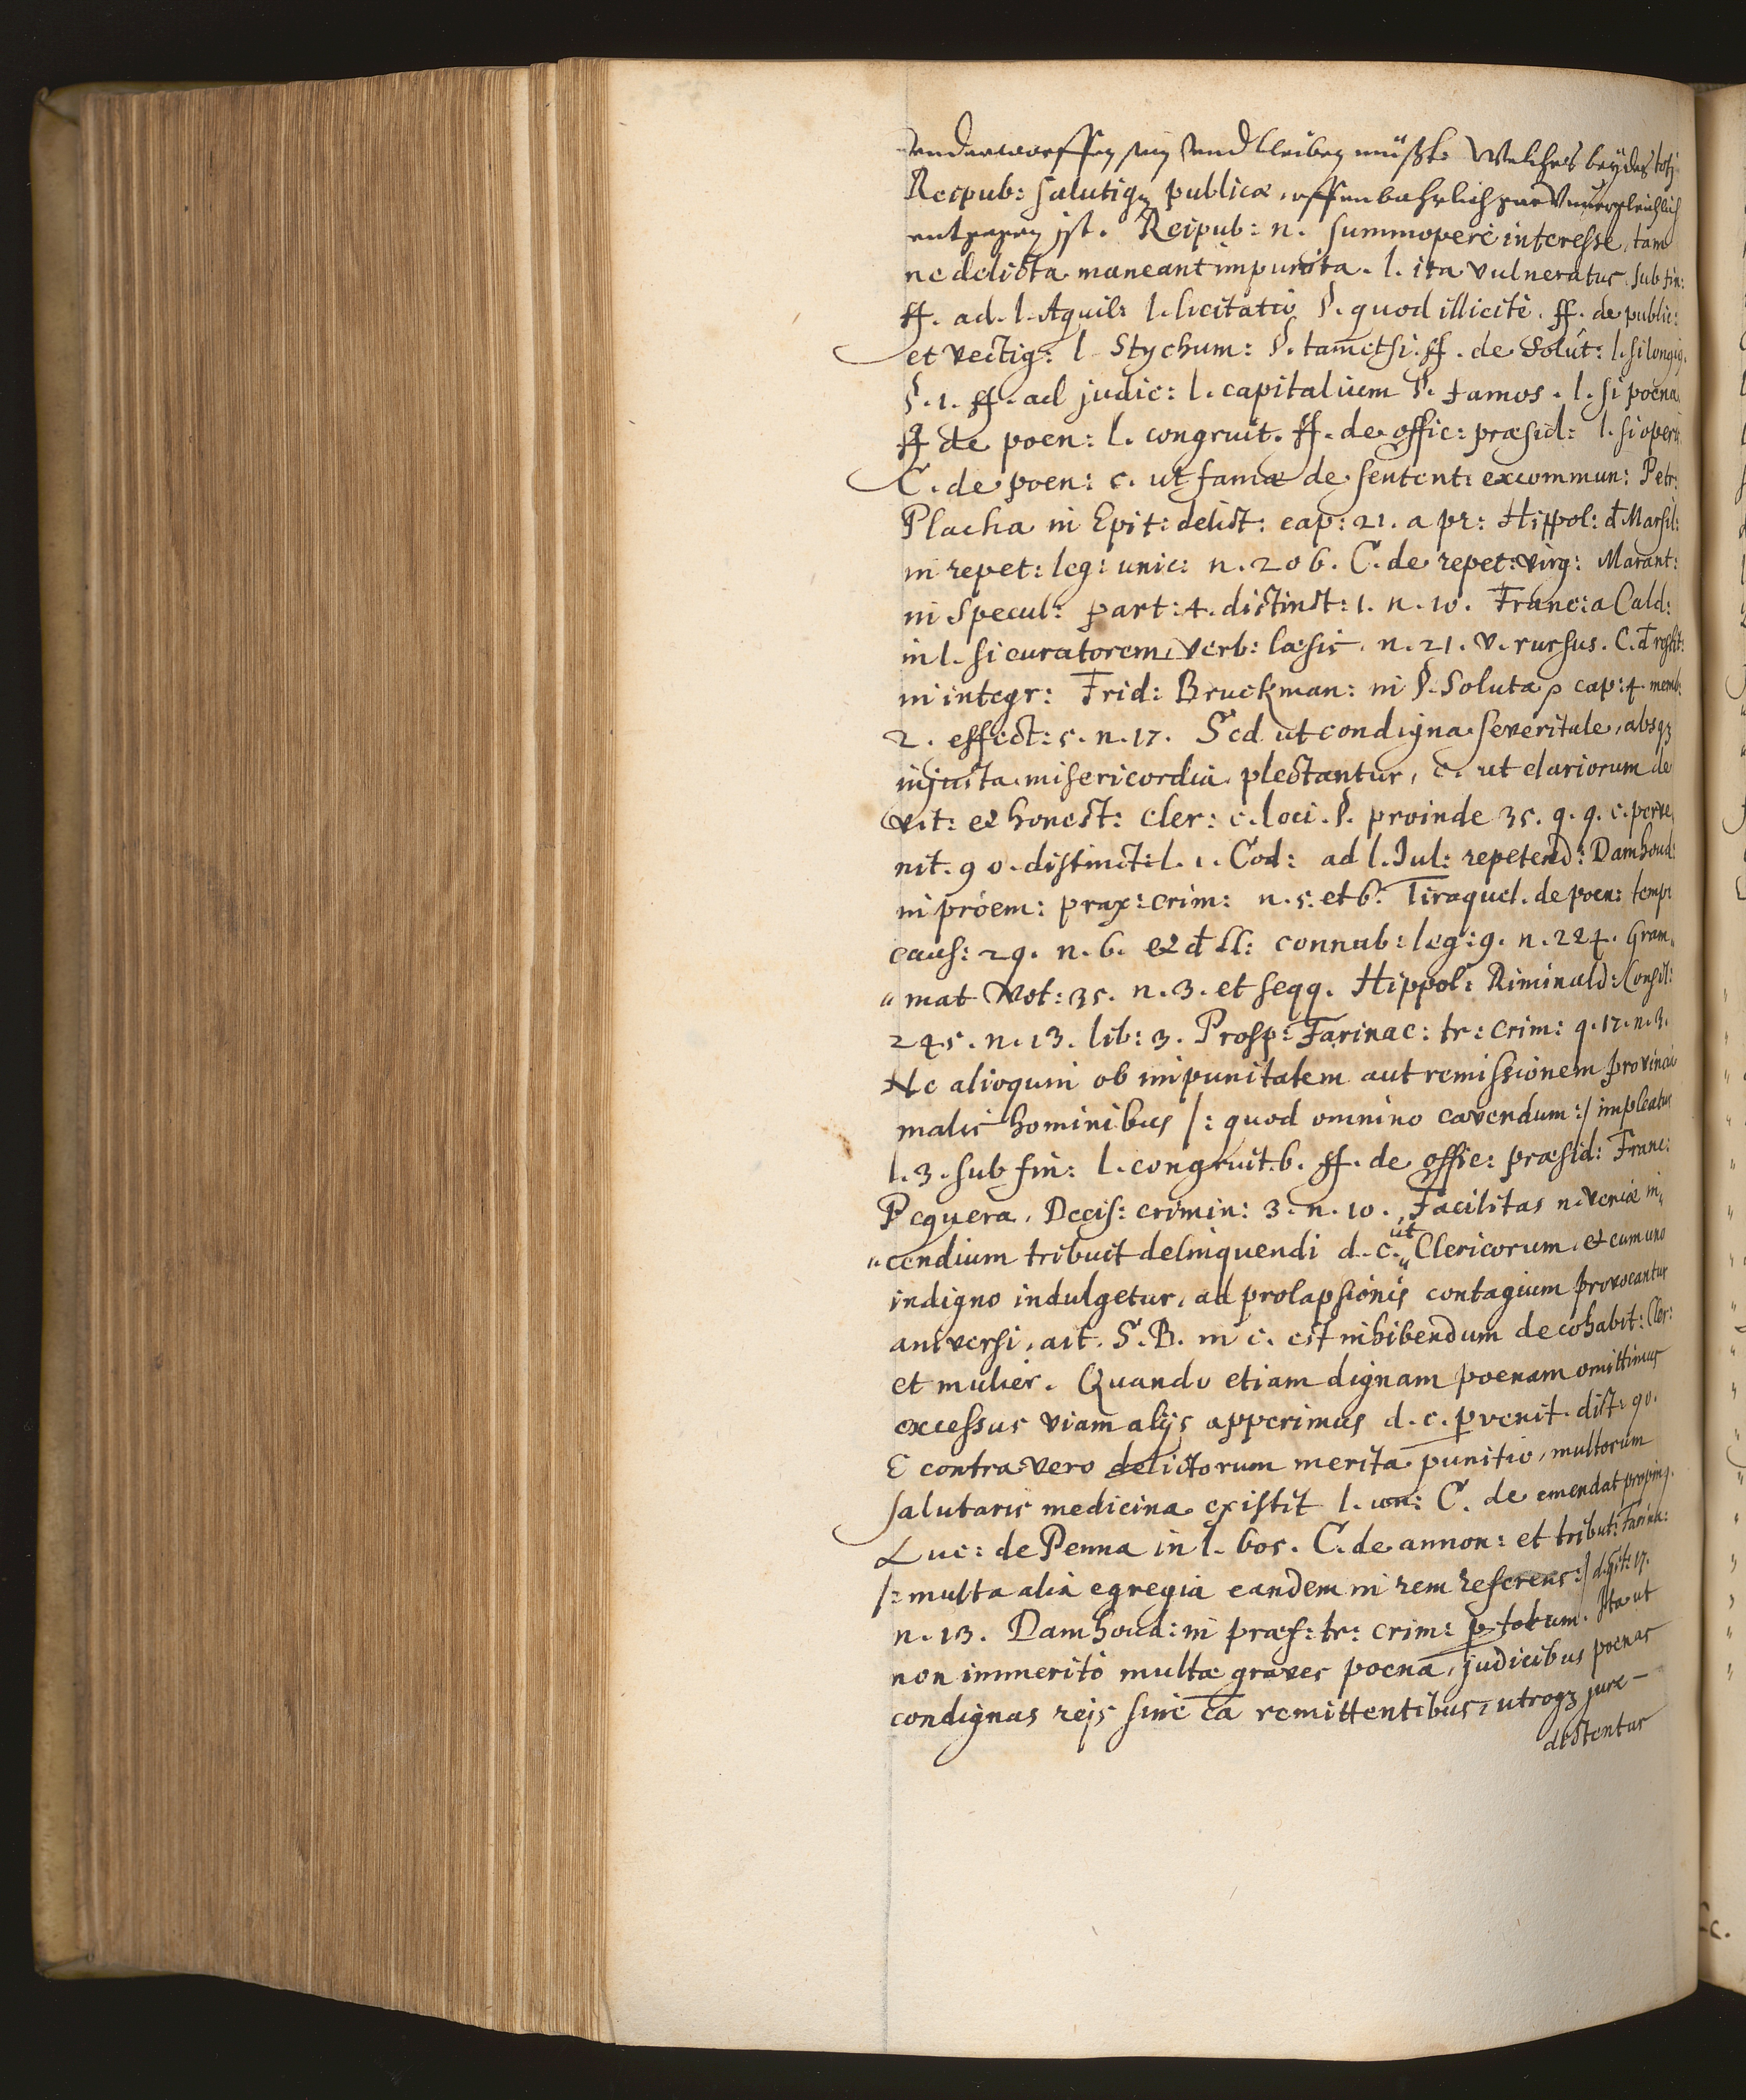 underworffen sein und bleiben müßte. Welches beydes toti
Reipub: salutiq; publicæ, offenbahrlich und Unvergleichlich
entgegen ist. Reipub: n. summoperè interesse, tam
ne delicta maneant impunita. l. ita vulneratus. sub fin:
ff. ad. l. Aquil: l. licitatio §. quod illicitè. ff. de public:
et vectig: l. Stychum: §. tametsi. ff. de Solut: l. si longiq.
§. 1. ff. ad judic: l. capitalium §. famos. l. si poena
ff de poen: l. congruit. ff. de offic: præsid: l. si operis
C. de poen: c. ut famæ de sentent: excommun: Petr:
Placha in Epit: delict: cap: 21. a pr: Hippol: đ Marsil:
in repet: leg: unic: n. 206. C. de repet: virg: Marant:
in Specul: part: 4. distinct: 1. n. 10. Franc: a Cald:
in l. si curatorem, verb: læsis. n. 21. v. rursus. C. đ restit:
in integr: Frid: Bruckman: in §. Soluta, cap: 4. memb:
2. effect: 5. n. 17. Sed ut condigna severitate, absq;
injusta misericordia plectantur, c. ut clariorum de
vit: et honest: Cler: c. loci. §. proinde 35. q. 9. c. perve,
nit. 90. distinct: l. 1. Cod: ad l. Jul: repetend: Damhoud:
in proem: prax: crim: n. 5. et 6. Tiraquel. de poen: temp:
caus: 29. n. 6. et đ ll: connub: leg: 9. n. 224. Gram„
„mat Vot: 35. n. 3. et seqq. Hippol: Riminald: Consil:
245. n. 13. lib: 3. Prosp: Farinac: tr: Crim: q. 17. n. 3.
Ne alioquin ob impunitatem aut remissionem provincia
malis hominibus /: quod omnino cavendum :/ impleatur
l. 3. sub fin: l. congruit. 6. ff. de offic: præsid: Franc:
Peguera, Decis: crimin: 3. n. 10. Facilitas n. veniæ in„
„cendium tribuit delinquendi d. c. ut Clericorum, et cum uno
indigno indulgetur, ad prolapsionis contagium provocantur
universi, ait. S. B. in c. est inhibendum de cohabit: Cler:
et mulier. Quando etiam dignam poenam omittimus
excessus viam alijs apperimus d. c. pvenit. dist: 90.
E contra vero delictorum merita punitio, multorum
salutaris medicina existit l. un: C. de emendat propinq.
Luc: de Penna in l. bos. C. de annon: et tribut: Farina:
/: multa alia egregia eandem in rem referens :/ d. tit: 17.
n. 13. Damhoud: in præf: tr: crim: p totum. Ita ut
non immeritò multæ graves poenæ, judicibus poenas
condignas reis sine cā remittentibus, utroq; jure –
dictentur